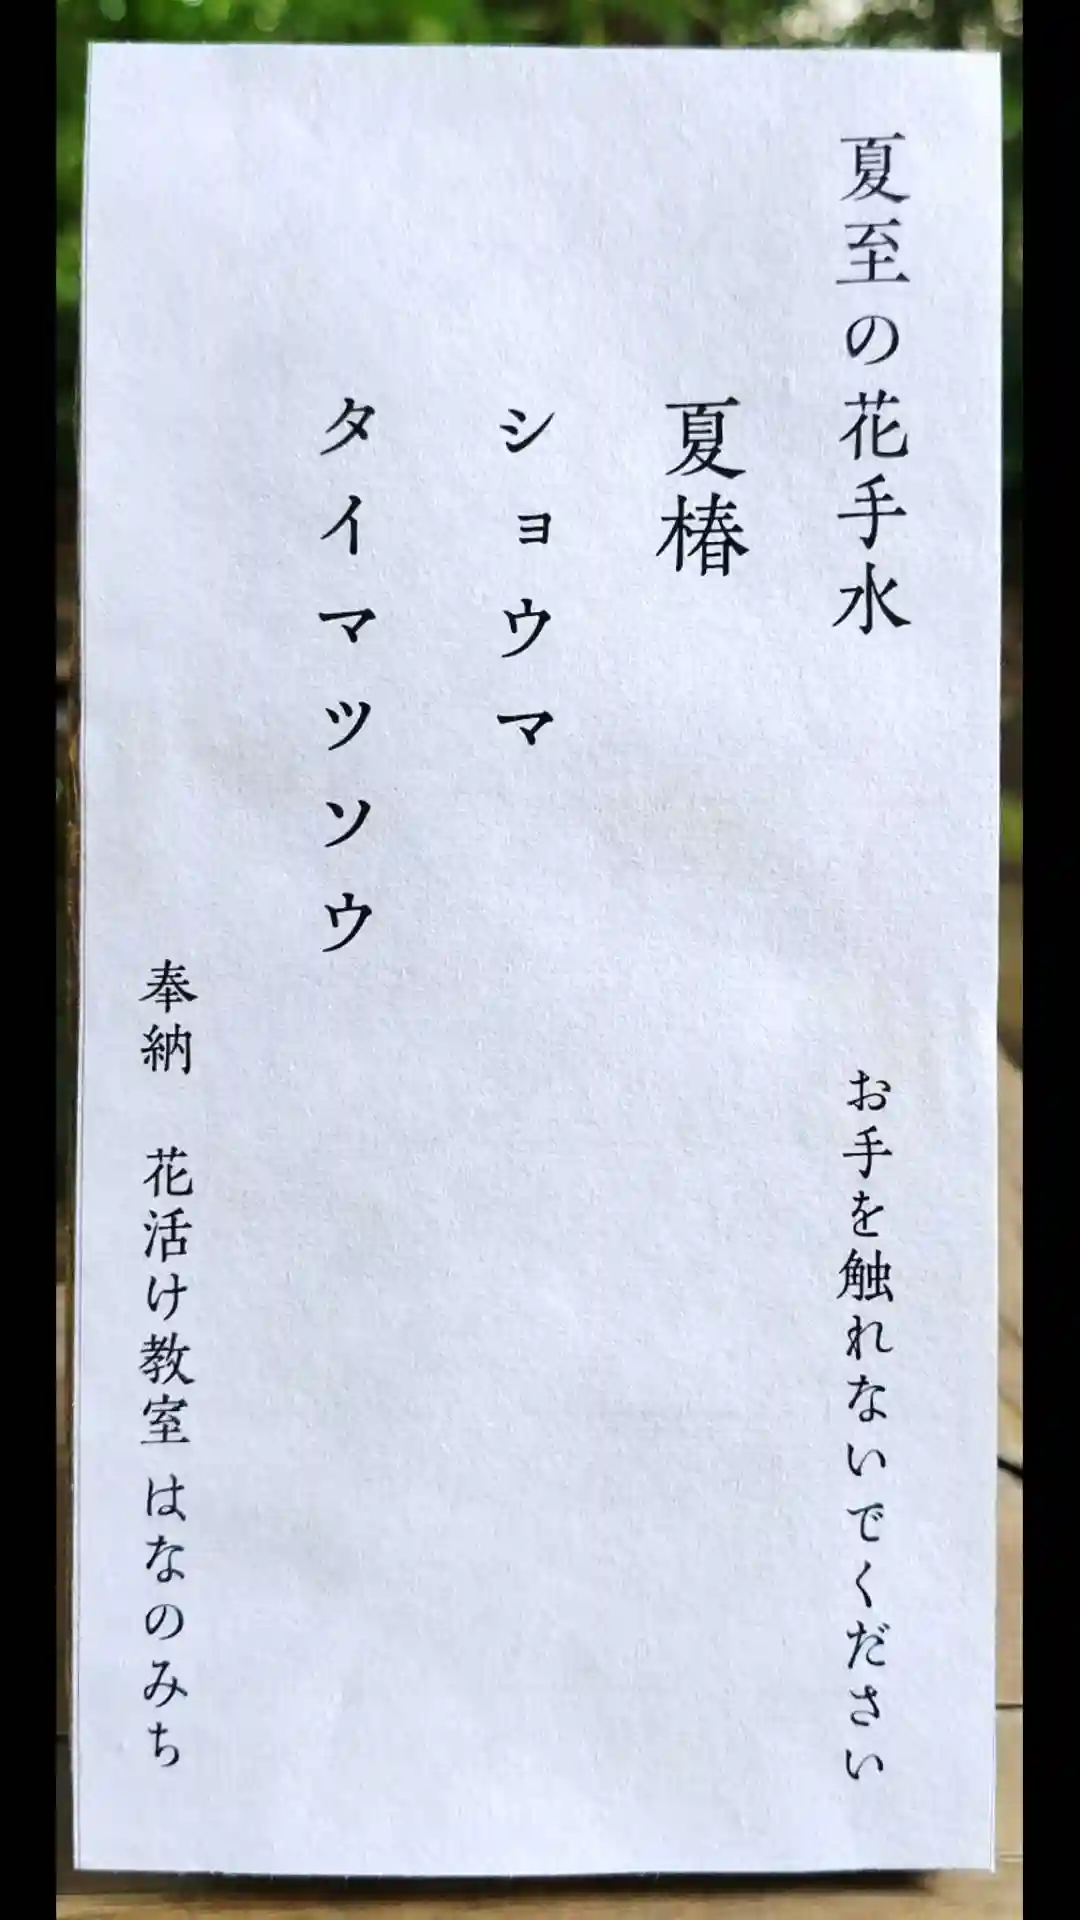 夏至の花手水
お手を触れないでください
夏椿
ショウマ
タイマツソウ
奉納　花活け教室 はなのみち